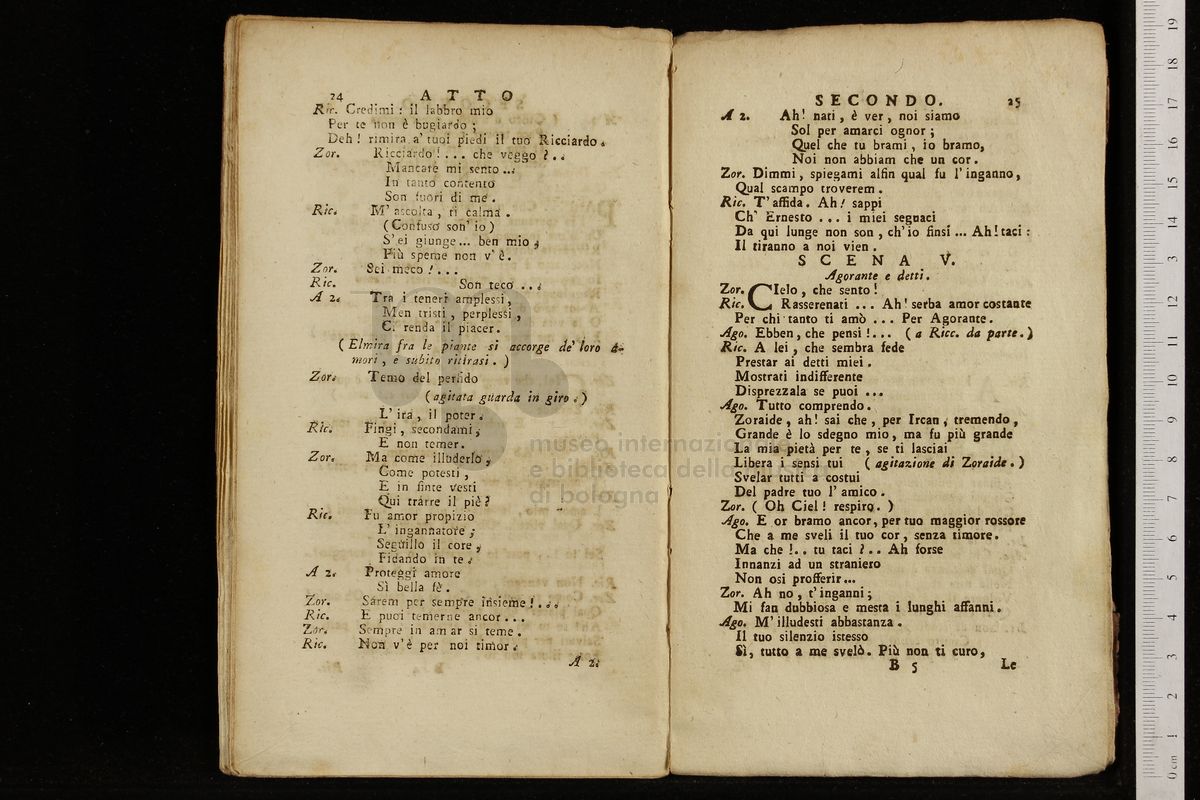 24 ATTO
Ric. Credimi : il labbro mio
Per te non è bugiardo ;
Deh ! rimira a' tuoi piedi il tuo Ricciardo.
Zor. Ricciardo ! ... che veggo ? ..
Mancare mi sento ...
In tanto contento
Son fuori di me.
Ric. M' ascolta, ti calma.
( Confuso son' io )
S' ei giunge ... ben mio,
Più speme non v' è.
Zor. Sei meco ! ...
Ric. Son teco ...
A 2. Tra i teneri amplessi,
Men tristi, perplessi,
Ci renda il piacer.
( Elmira fra le piante si accorge de' loro a-
mori, e subito ritirasi. )
Zor. Temo del perfido
( agitata guarda in giro. )
L' ira, il poter.
Ric. Fingi, secondami,
E non temer.
Zor. Ma come illuderlo,
Come potesti,
E in finte vesti
Qui trarre il piè ?
Ric. Fu amor propizio
L' ingannatore ;
Seguillo il core,
Fidando in te.
A 2. Proteggi amore
Sì bella fè.
Zor. Sarem per sempre insieme ! ...
Ric. E puoi temerne ancor ...
Zor. Sempre in amar si teme.
Ric. Non v' è per noi timor.
A 2.
SECONDO. 25
A 2. Ah ! nati, è ver, noi siamo
Sol per amarci ognor ;
Quel che tu brami, io bramo,
Noi non abbiam che un cor.
Zor. Dimmi, spiegami alfin qual fu l' inganno,
Qual scampo troverem.
Ric. T' affida. Ah ! sappi
Ch' Ernesto ... i miei seguaci
Da qui lunge non son, ch' io finsi ... Ah ! taci :
Il tiranno a noi vien.
SCENA V.
Agorante e detti.
Zor. CIelo, che sento !
Ric. Rasserenati ... Ah ! serba amor costante
Per chi tanto ti amò ... Per Agorante.
Ago. Ebben, che pensi ! ... ( a Ricc. da parte. )
Ric. A lei, che sembra fede
Prestar ai detti miei.
Mostrati indifferente
Disprezzala se puoi ...
Ago. Tutto comprendo.
Zoraide, ah ! sai che, per Ircan, tremendo,
Grande è lo sdegno mio, ma fu più grande
La mia pietà per te, se ti lasciai
Libera i sensi tui ( agitazione di Zoraide. )
Svelar tutti a costui
Del padre tuo l' amico.
Zor. ( Oh Ciel ! respiro. )
Ago. E or bramo ancor, per tuo maggior rossore
Che a me sveli il tuo cor, senza timore.
Ma che ! .. tu taci ? .. Ah forse
Innanzi ad un straniero
Non osi profferir ...
Zor. Ah no, t' inganni ;
Mi fan dubbiosa e mesta i lunghi affanni.
Ago. M' illudesti abbastanza.
Il tuo silenzio istesso
Sì, tutto a me svelò. Più non ti curo,
B 5 Le
museo internazionale
e biblioteca della musica
di bologna
0 cm 1 2 3 4 5 6 7 8 9 10 11 12 13 14 15 16 17 18 19